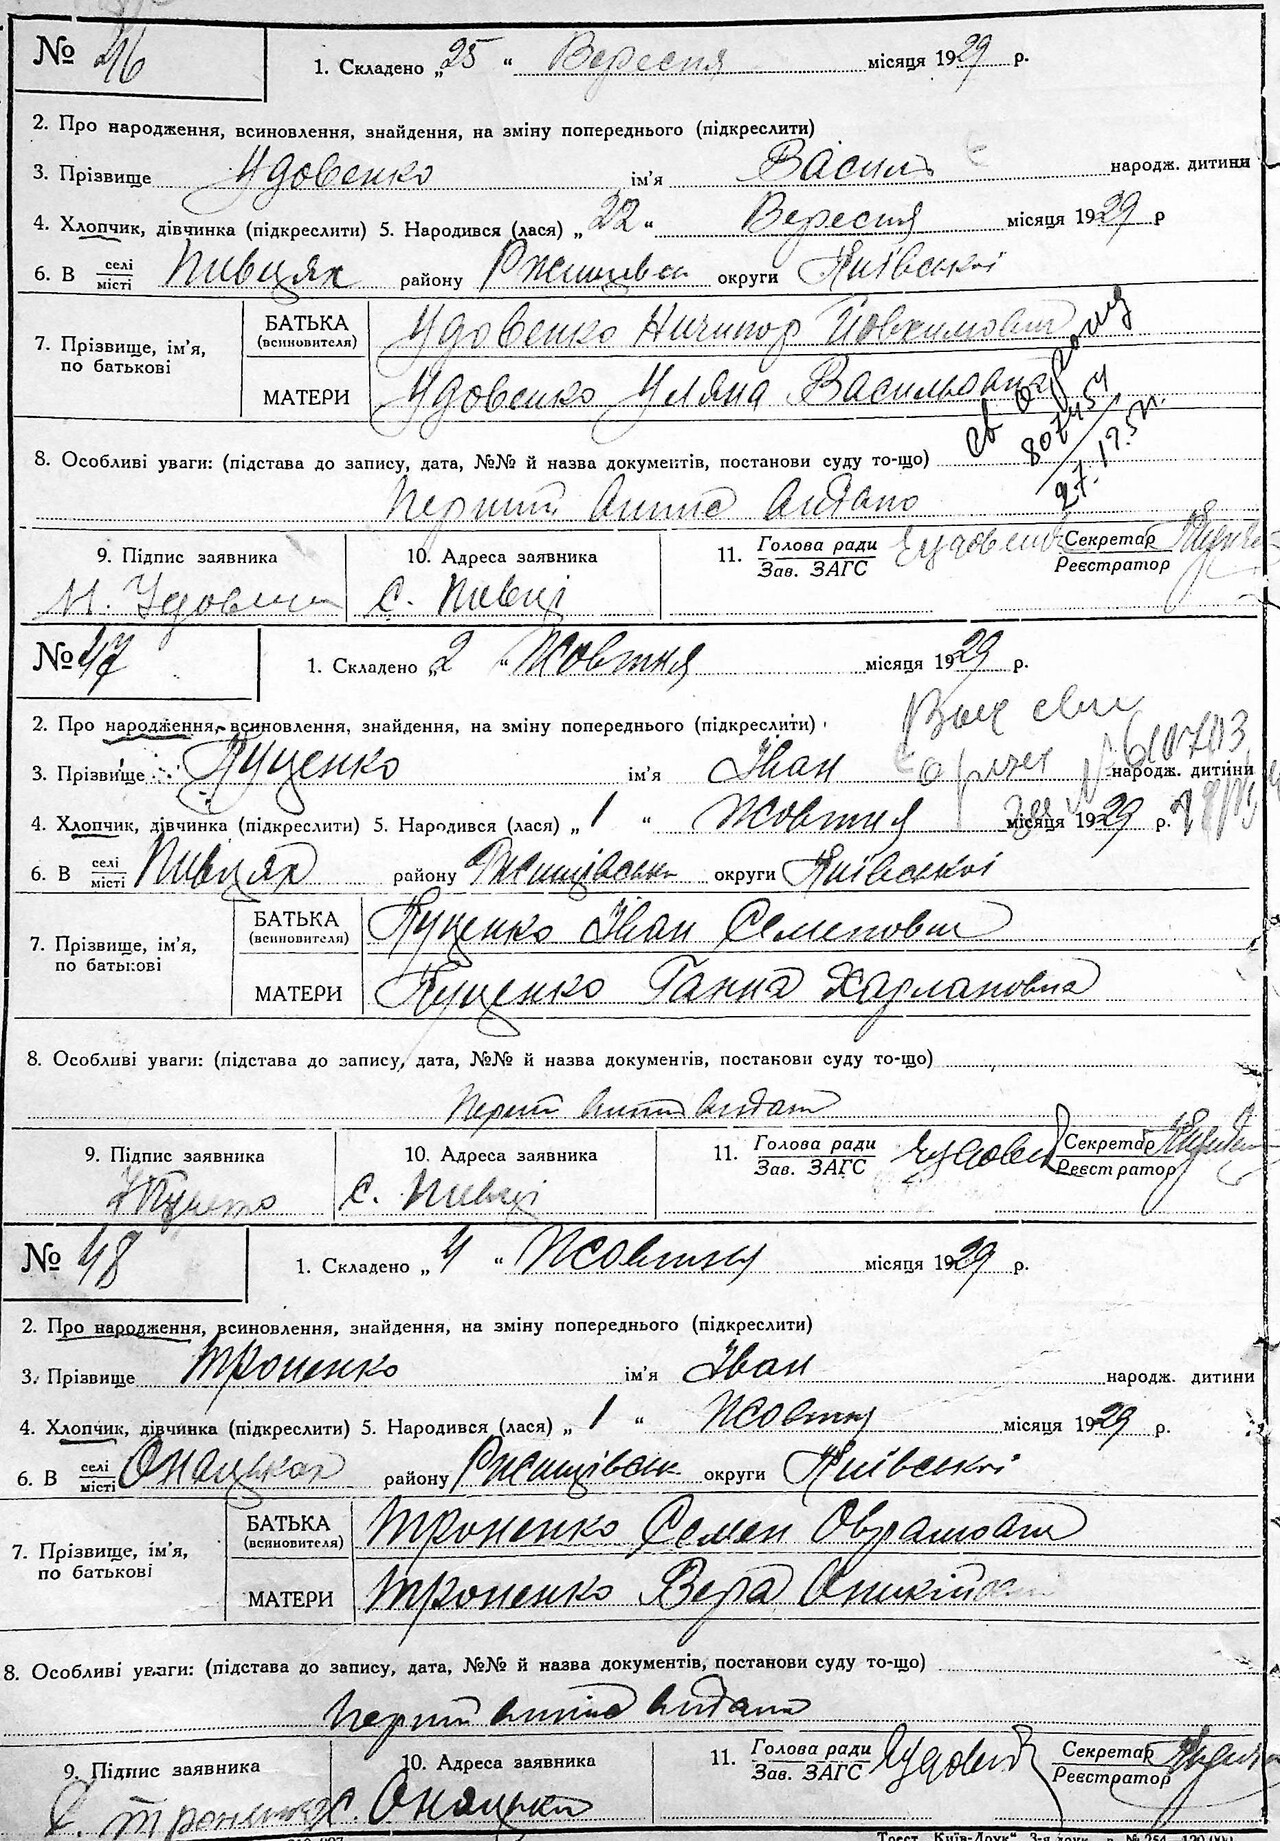 № 46
1. Складено „25“ Вересня місяця 1929 р.
2. Про народження, всиновлення, знайдення, на зміну попереднього (підкреслити)
3. Прізвище Удовенко ім'я Василь народж. дитини
4. Хлопчик, дівчинка (підкреслити) 5. Народився (лася) „22“ Вересня місяця 1929 р
6. В селі/місті Пивцях району Ржищівськ округи Київської
7. Прізвище, ім'я, по батькові
БАТЬКА (всиновителя) Удовенко Ничипор Йовхимович
МАТЕРИ Удовенко Уляна Васильовна
80745
8. Особливі уваги: (підстава до запису, дата, №№ й назва документів, постанови суду то-що)
Перший випис видано
9. Підпис заявника 10. Адреса заявника 11. Голова ради/Зав. ЗАГС Секретар/Реєстратор
с. Пивці
№ 47
1. Складено „2“ Жовтня місяця 1929 р.
2. Про народження, всиновлення, знайдення, на зміну попереднього (підкреслити)
3. Прізвище Куценко ім'я Іван народж. дитини
№ 610703
4. Хлопчик, дівчинка (підкреслити) 5. Народився (лася) „1“ Жовтня місяця 1929 р.
6. В селі/місті Пивцях району Ржищівськ округи Київської
7. Прізвище, ім'я, по батькові
БАТЬКА (всиновителя) Куценко Іван Семенович
МАТЕРИ Куценко Ганна Харлановна
8. Особливі уваги: (підстава до запису, дата, №№ й назва документів, постанови суду то-що)
Перший випис видано
9. Підпис заявника 10. Адреса заявника 11. Голова ради/Зав. ЗАГС Секретар/Реєстратор
с. Пивці
№ 48
1. Складено „4“ Жовтня місяця 1929 р.
2. Про народження, всиновлення, знайдення, на зміну попереднього (підкреслити)
3. Прізвище Троненко ім'я Іван народж. дитини
4. Хлопчик, дівчинка (підкреслити) 5. Народився (лася) „1“ Жовтня місяця 1929 р.
6. В селі/місті Онацьках району Ржищівськ округи Київської
7. Прізвище, ім'я, по батькові
БАТЬКА (всиновителя) Троненко Семен Оврамович
МАТЕРИ Троненко Вера
8. Особливі уваги: (підстава до запису, дата, №№ й назва документів, постанови суду то-що)
Перший випис видано
9. Підпис заявника 10. Адреса заявника 11. Голова ради/Зав. ЗАГС Секретар/Реєстратор
С. Троненко с. Онацьки
Трест „Київ-Друк“